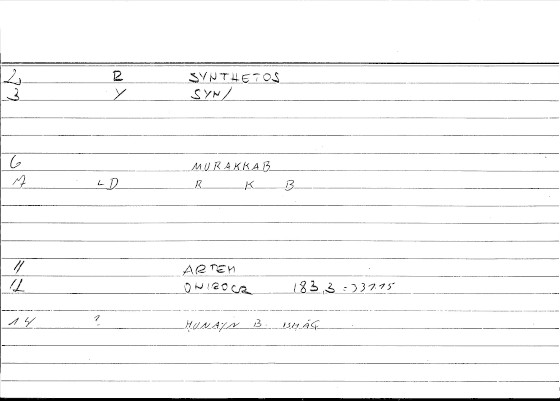 2 R SYNTHETOS
3 Y SYN/
6 MURAKKAB
LD R K B
11 ARTEM
12 ONIROCR 183,3
14 ? ḤUNAYN B. ISḤĀQ